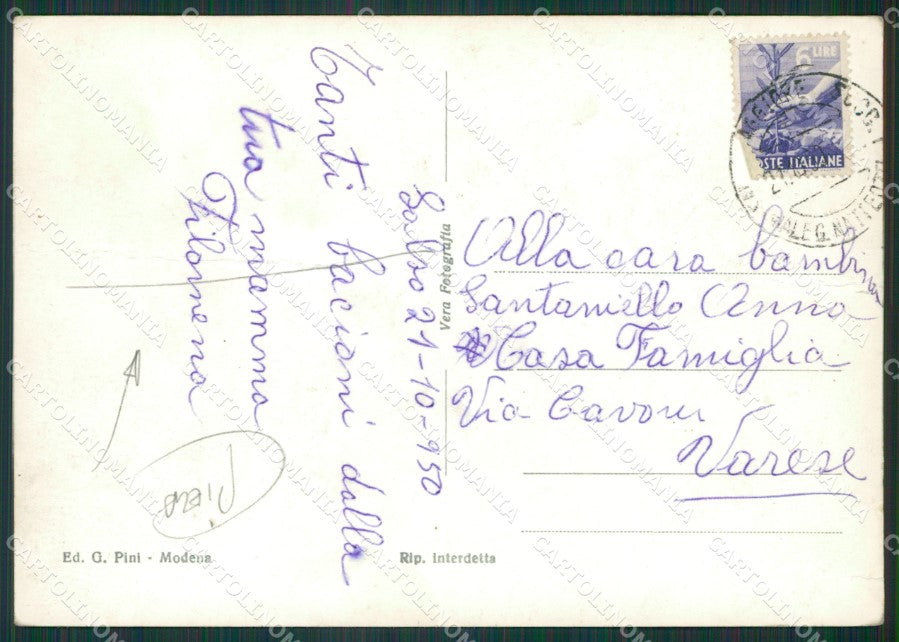 Salvo 21-10-950
Tanti bacioni dalla
tua mamma
Filomena
6 LIRE
POSTE ITALIANE
Alla cara bambina
Santaniello Anna
Casa Famiglia
Via Cavour
Varese
Vera Fotografia
Ed. G. Pini - Modena
Rip. Interdetta
CARTOLINOMANIA